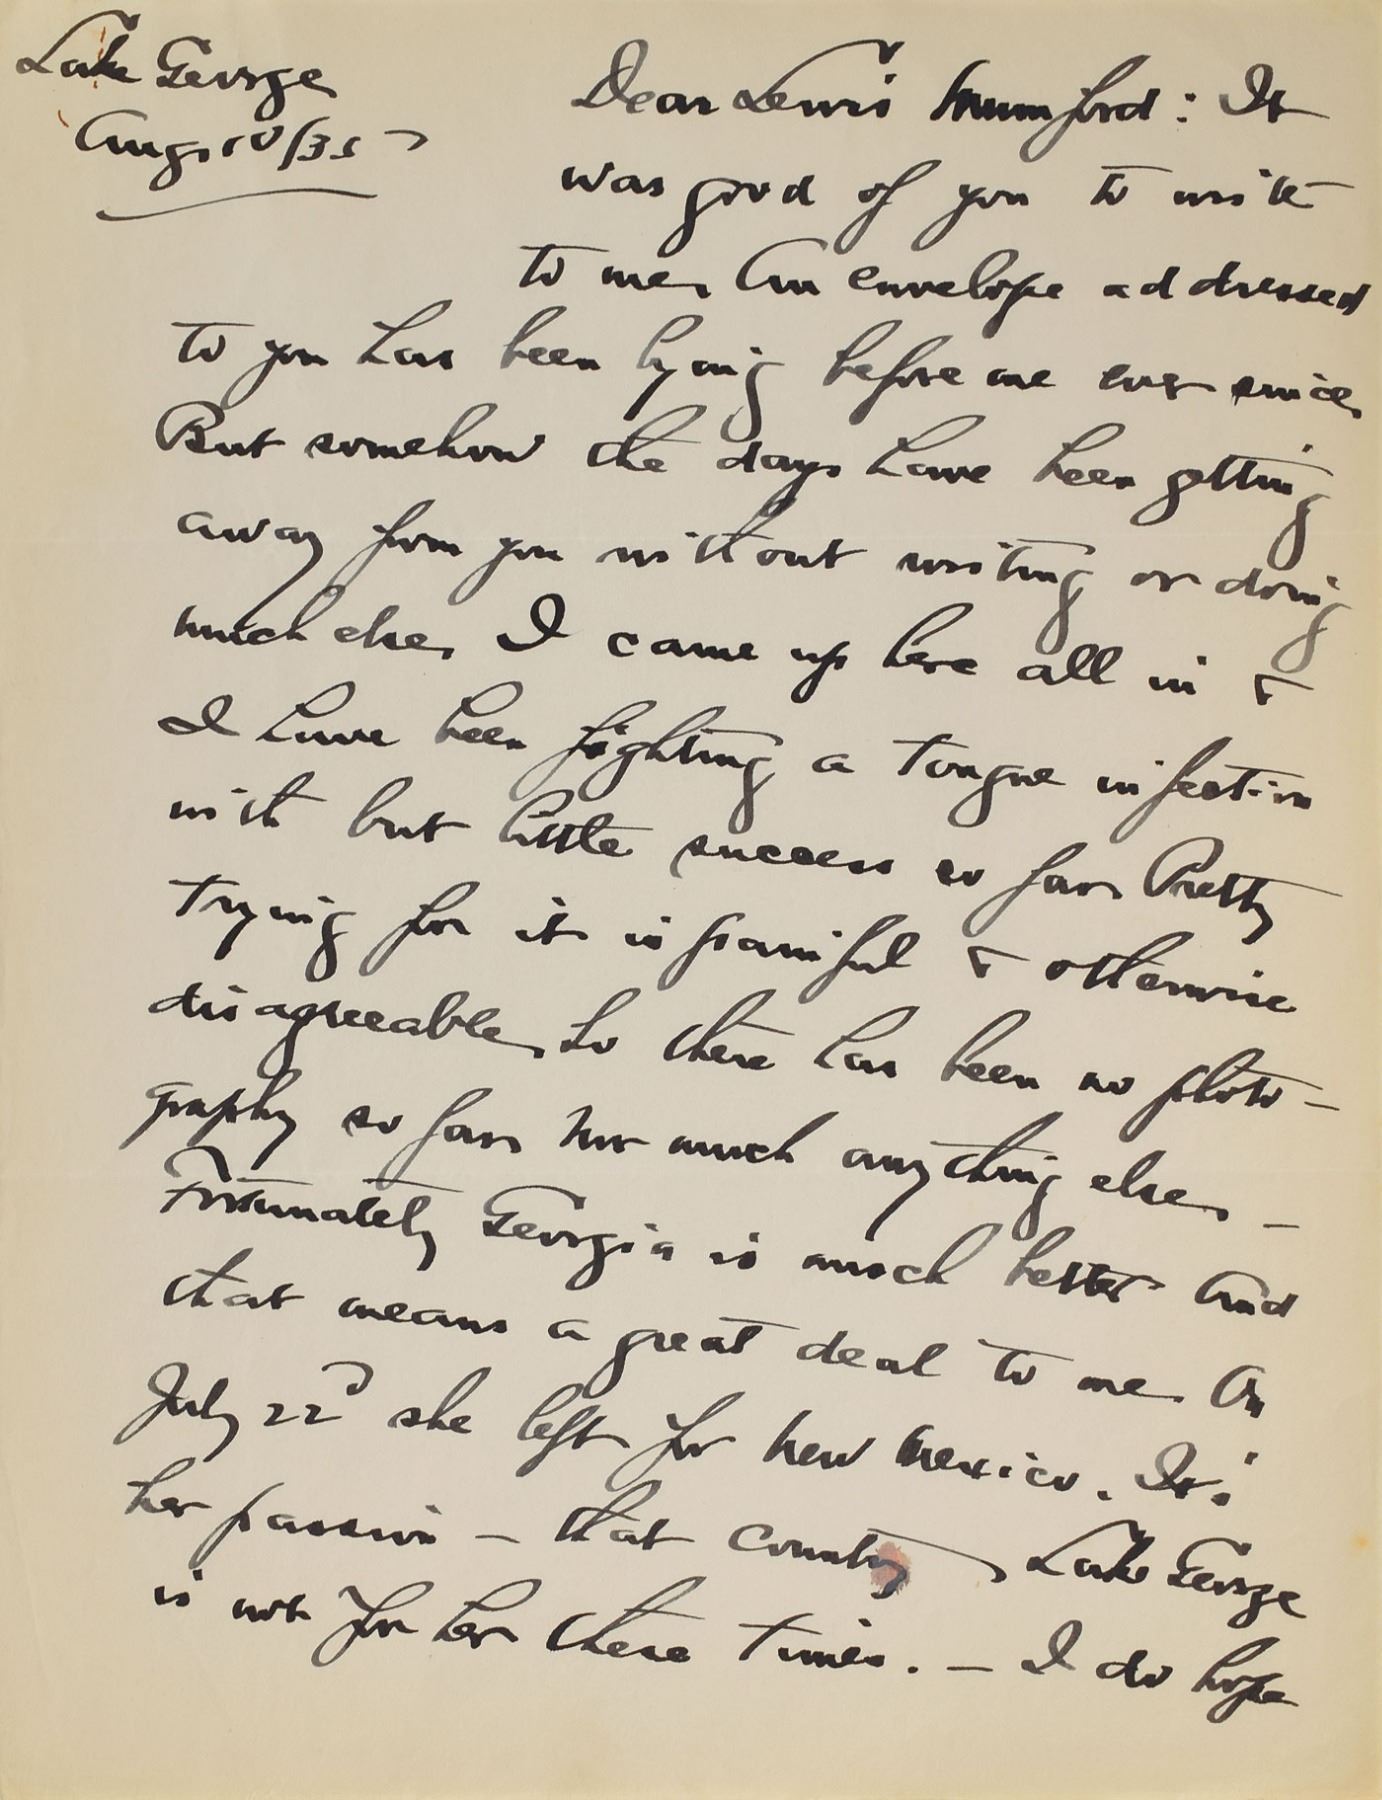 Lake George
Aug. 10/35
Dear Lewis Mumford: It
was good of you to write
to me. An envelope addressed
to you has been lying before me ever since.
But somehow the days have been getting
away from you without writing or doing
much else. I came up here all in &
I have been fighting a tongue infection
with but little success so far. Pretty
trying for it is painful & otherwise
disagreeable. So there has been no photo-
graphy so far. Nor much anything else. –
Fortunately Georgia is much better and
that means a great deal to me. On
July 22d she left for New Mexico. It's
her passion – that country. Lake George
is not for her these times. – I do hope